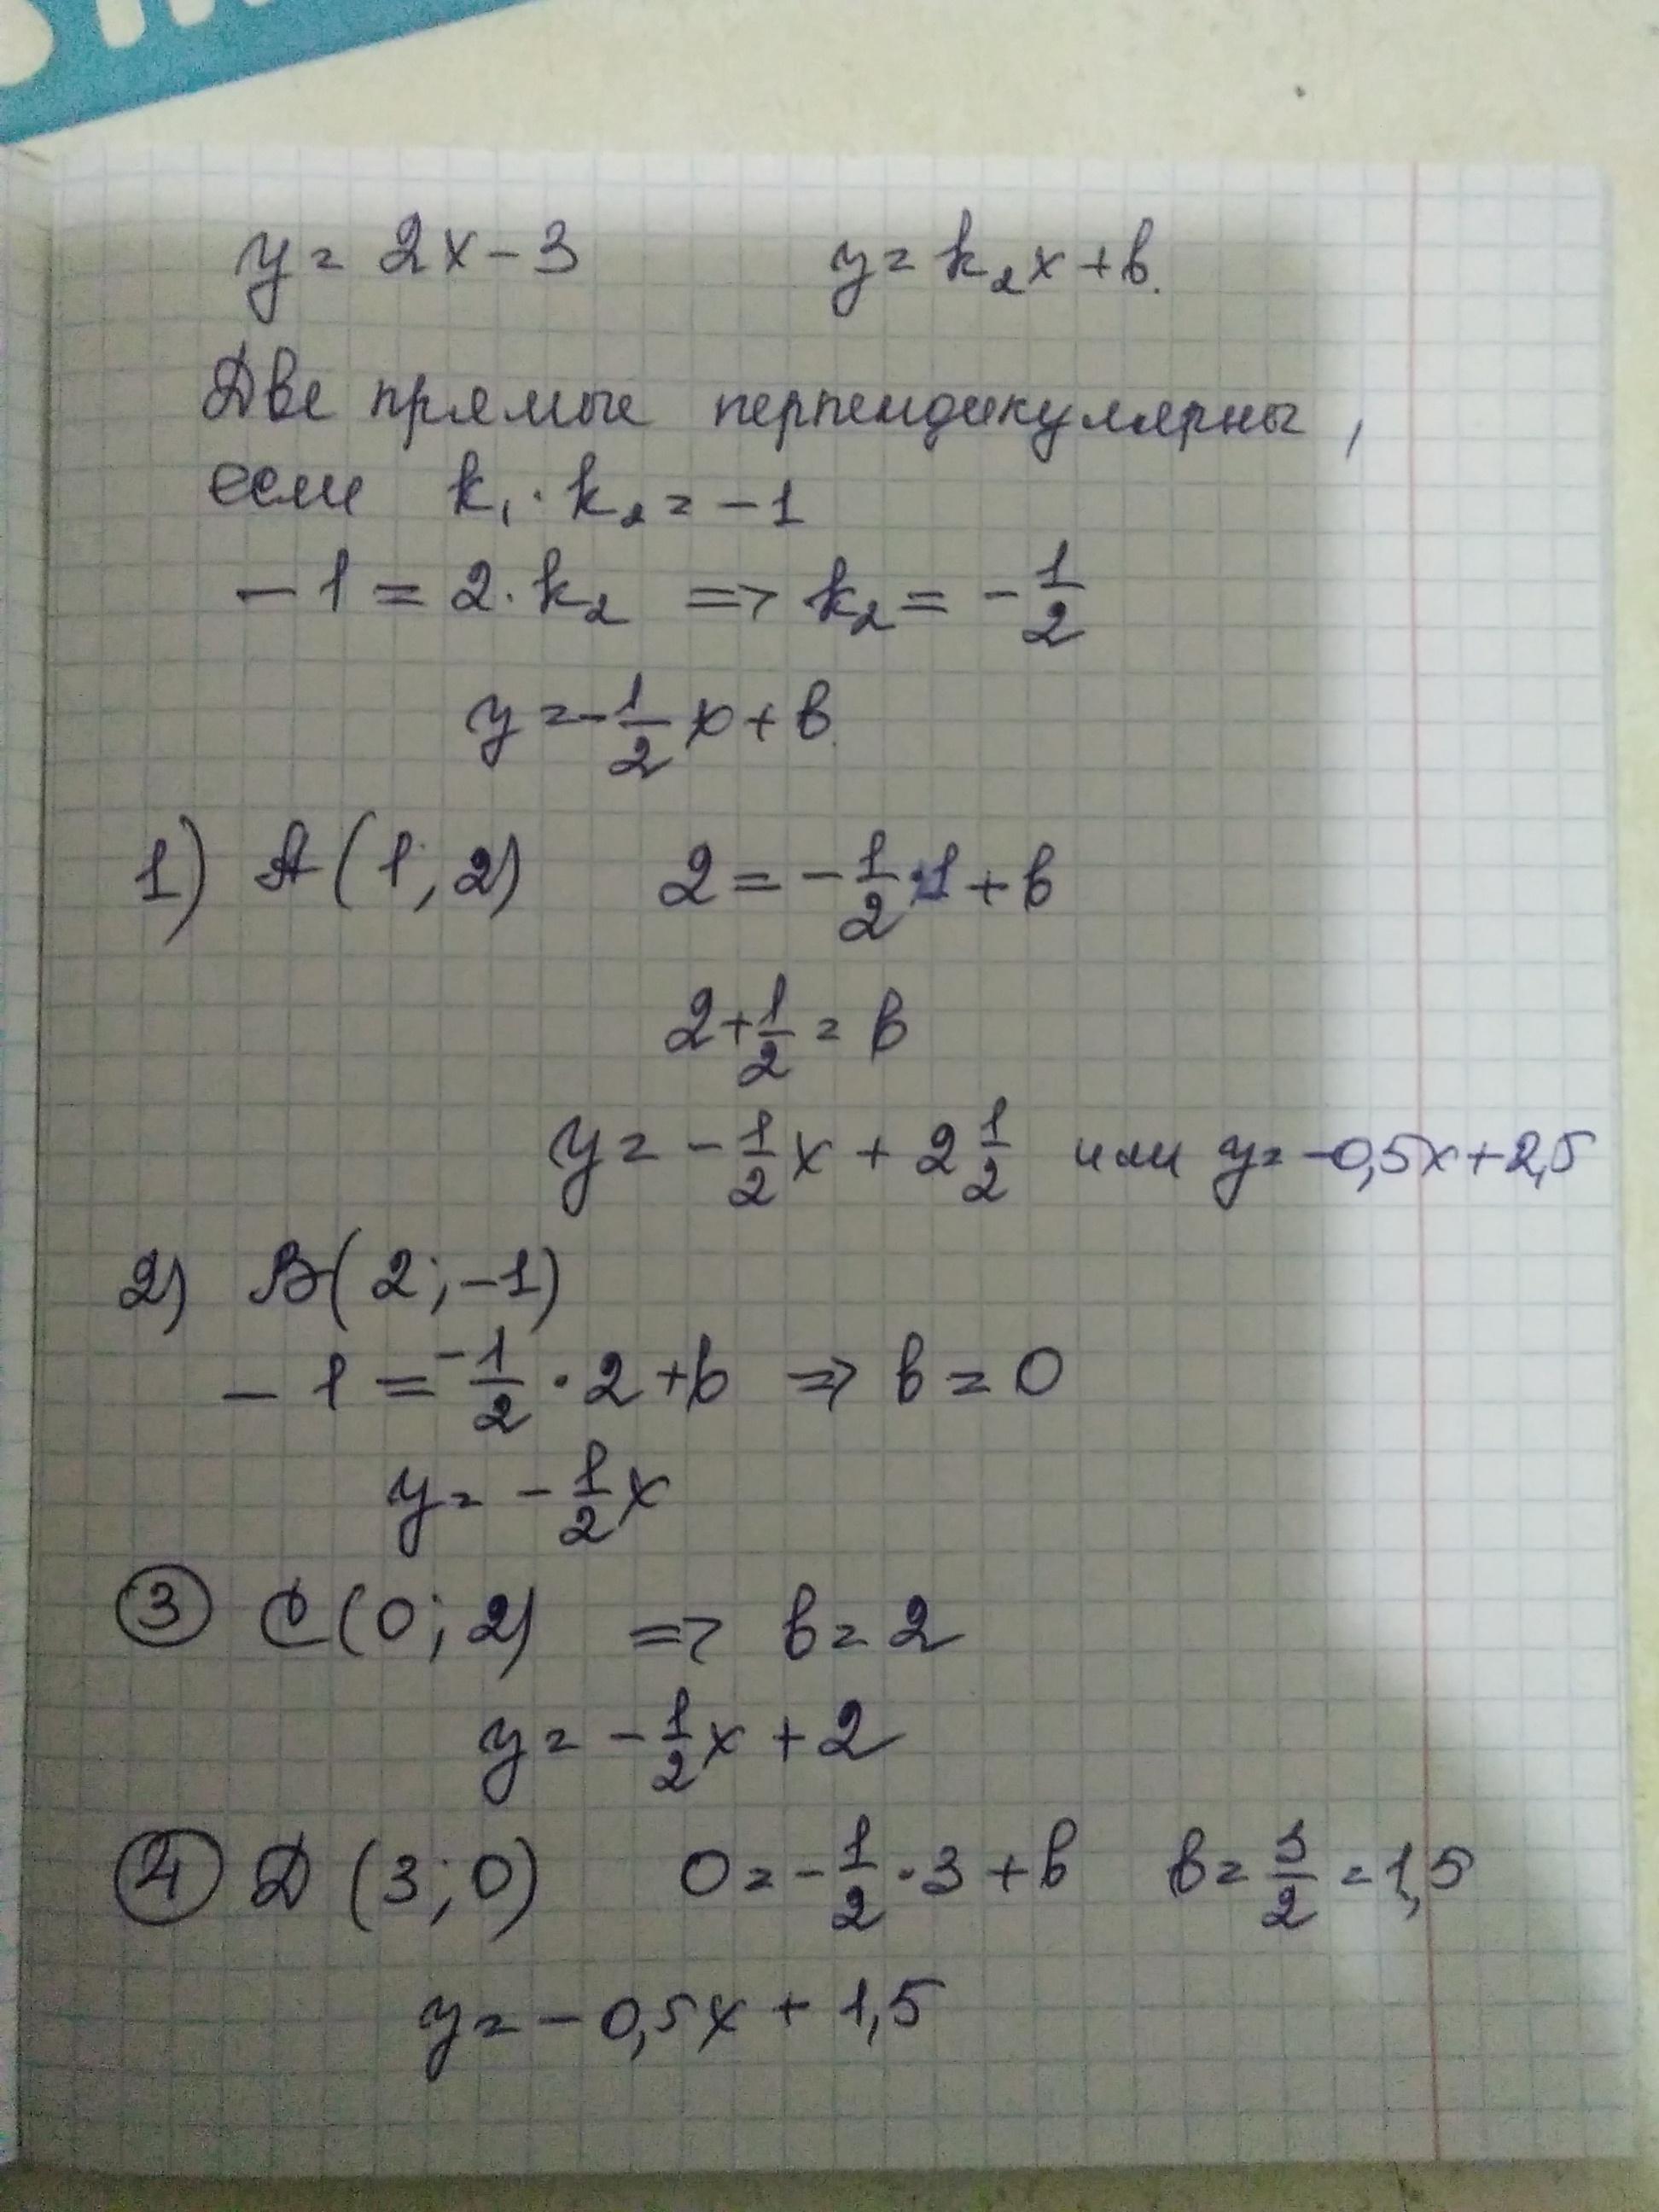 y = 2x - 3 y = k₂x + b.
Две прямые перпендикулярны,
если k₁ · k₂ = -1
-1 = 2 · k₂ => k₂ = -1/2
y = -1/2 x + b
1) A(1; 2) 2 = -1/2 · 1 + b
2 + 1/2 = b
y = -1/2 x + 2 1/2 или y = -0,5x + 2,5
2) B(2; -1)
-1 = -1/2 · 2 + b => b = 0
y = -1/2 x
3 C(0; 2) => b = 2
y = -1/2 x + 2
4 D(3; 0) 0 = -1/2 · 3 + b b = 3/2 = 1,5
y = -0,5x + 1,5